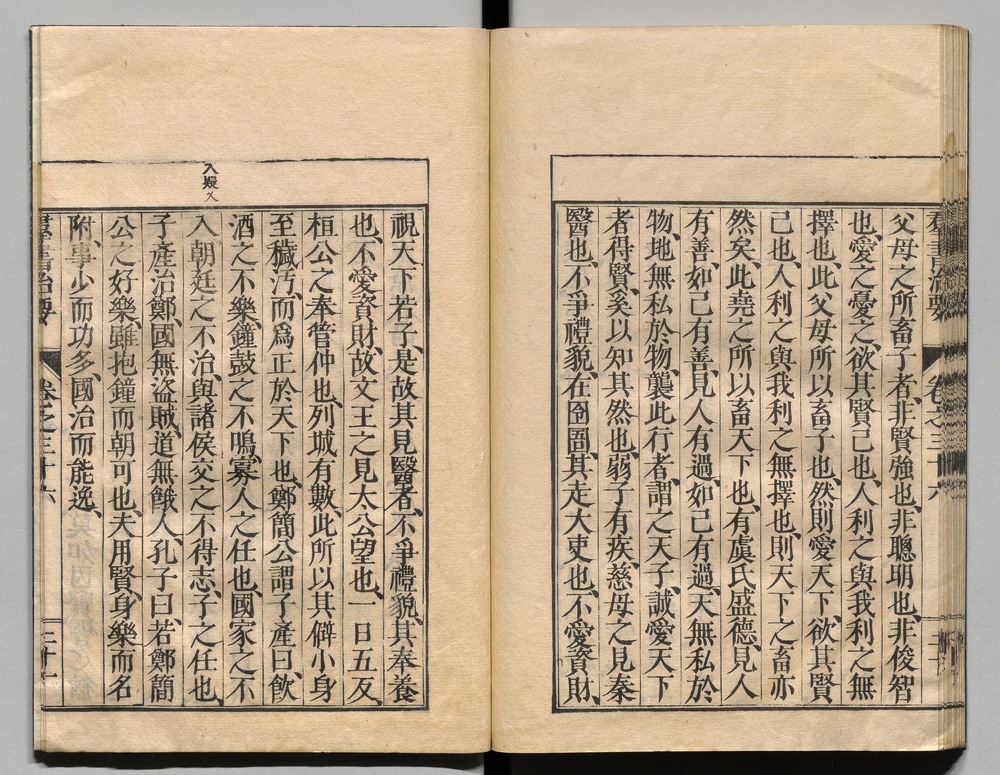 羣書治要 卷之三十六
父母之所畜子者、非賢強也、非聰明也、非俊智
也、愛之憂之、欲其賢己也、人利之與我利之無
擇也、此父母所以畜子也、然則愛天下、欲其賢
己也、人利之與我利之無擇也、則天下之畜亦
然矣、此堯之所以畜天下也、有虞氏盛德、見人
有善、如己有善、見人有過、如己有過、天無私於
物、地無私於物、襲此行者、謂之天子、誠愛天下
者得賢、奚以知其然也、弱子有疾、慈母之見秦
醫也、不爭禮貌、在囹圄、其走大吏也、不愛資財、
視天下若子、是故其見醫者、不爭禮貌、其奉養
也、不愛資財、故文王之見太公望也、一日五反、
桓公之奉管仲也、列城有數、此所以其僻小身
至穢汚、而爲正於天下也、鄭簡公謂子產曰、飮
酒之不樂、鐘鼓之不鳴、寡人之任也、國家之不
入疑乂
入朝廷之不治、與諸侯交之不得志、子之任也、
子產治鄭、國無盜賊、道無餓人、孔子曰、若鄭簡
公之好樂、雖抱鐘而朝可也、夫用賢、身樂而名
附、事少而功多、國治而能逸、
羣書治要 卷之三十六 二十一